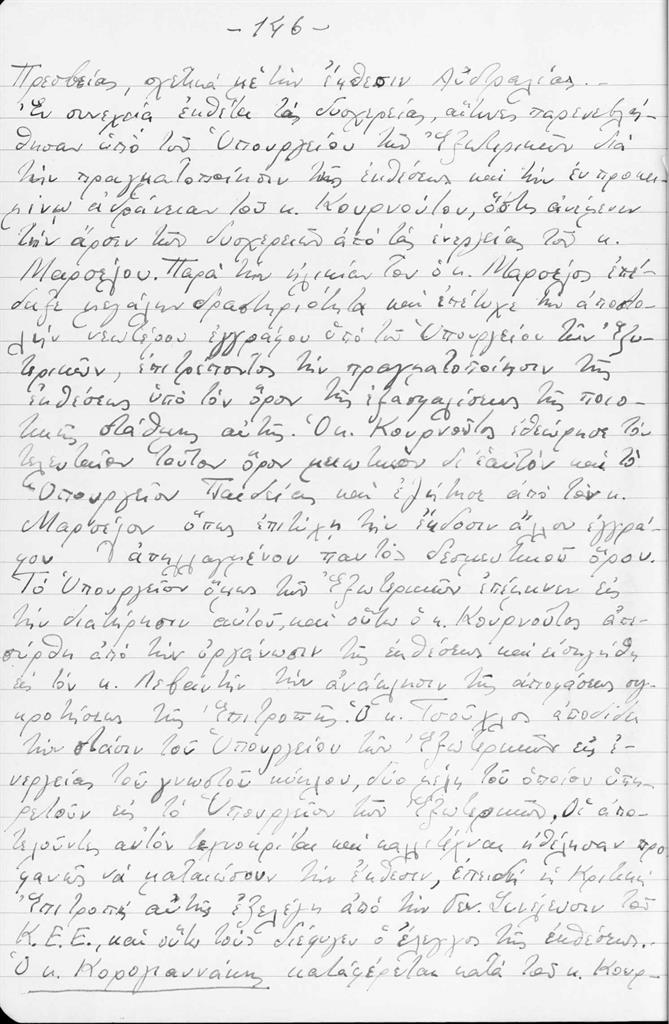 - 146 -
Πρεσβείας, σχετικά με τήν ἔκθεσιν Αὐστραλίας.-
Ἐν συνεχείᾳ ἐκθέτει τάς δυσχερείας, αἵτινες παρενεβλή-
θησαν ὑπό τοῦ Ὑπουργείου τῶν Ἐξωτερικῶν διά
τήν πραγματοποίησιν τῆς ἐκθέσεως καί τήν ἐν προκει-
μένῳ ἀδράνειαν τοῦ κ. Κουρνούτου, ὅστις ἀνέμενεν
τήν ἄρσιν τῶν δυσχερειῶν ἀπό τάς ἐνεργείας τοῦ κ.
Μαρσέλου. Παρά τήν ἡλικίαν του ὁ κ. Μαρσέλος ἐπέ-
δειξε μεγάλην δραστηριότητα καί ἐπέτυχε τήν ἀποστο-
λήν νεωτέρου ἐγγράφου ὑπό τοῦ Ὑπουργείου τῶν Ἐξω-
τερικῶν, ἐπιτρέποντος τήν πραγματοποίησιν τῆς
ἐκθέσεως ὑπό τόν ὅρον τῆς ἐξασφαλίσεως τῆς ποιο-
τικῆς στάθμης αὐτῆς. Ὁ κ. Κουρνοῦτος ἐθεώρησε τόν
τελευταῖον τοῦτον ὅρον μειωτικόν δι' ἑαυτόν καί τό
Ὑπουργεῖον Παιδείας καί ἐζήτησε ἀπό τόν κ.
Μαρσέλον ὅπως ἐπιτύχῃ τήν ἔκδοσιν ἄλλου ἐγγρά-
φου ἀπηλλαγμένου παντός δεσμευτικοῦ ὅρου.
Τό Ὑπουργεῖον ὅμως τῶν Ἐξωτερικῶν ἐπέμεινεν εἰς
τήν διατήρησιν αὐτοῦ, καί οὕτω ὁ κ. Κουρνοῦτος ἀπε-
σύρθη ἀπό τήν ὀργάνωσιν τῆς ἐκθέσεως καί εἰσηγήθη
εἰς τόν κ. Λεβαντήν τήν ἀνάκλησιν τῆς ἀποφάσεως συγ-
κροτήσεως τῆς Ἐπιτροπῆς. Ὁ κ. Τσοῦχλος ἀποδίδει
τήν στάσιν τοῦ Ὑπουργείου τῶν Ἐξωτερικῶν εἰς ἐ-
νεργείας τοῦ γνωστοῦ κύκλου, δύο μέλη τοῦ ὁποίου ὑπη-
ρετοῦν εἰς τό Ὑπουργεῖον τῶν Ἐξωτερικῶν. Οἱ ἀπο-
τελοῦντες αὐτόν τεχνοκρίται καί καλλιτέχναι ἠθέλησαν προ-
φανῶς νά ματαιώσουν τήν ἔκθεσιν, ἐπειδή ἡ Κριτική
Ἐπιτροπή αὐτῆς ἐξελέγη ἀπό τήν Γεν. Συνέλευσιν τοῦ
Κ.Ε.Ε., καί οὕτω τούς διέφυγεν ὁ ἔλεγχος τῆς ἐκθέσεως.-
Ὁ κ. Κορογιαννάκης καταφέρεται κατά τοῦ κ. Κουρ-